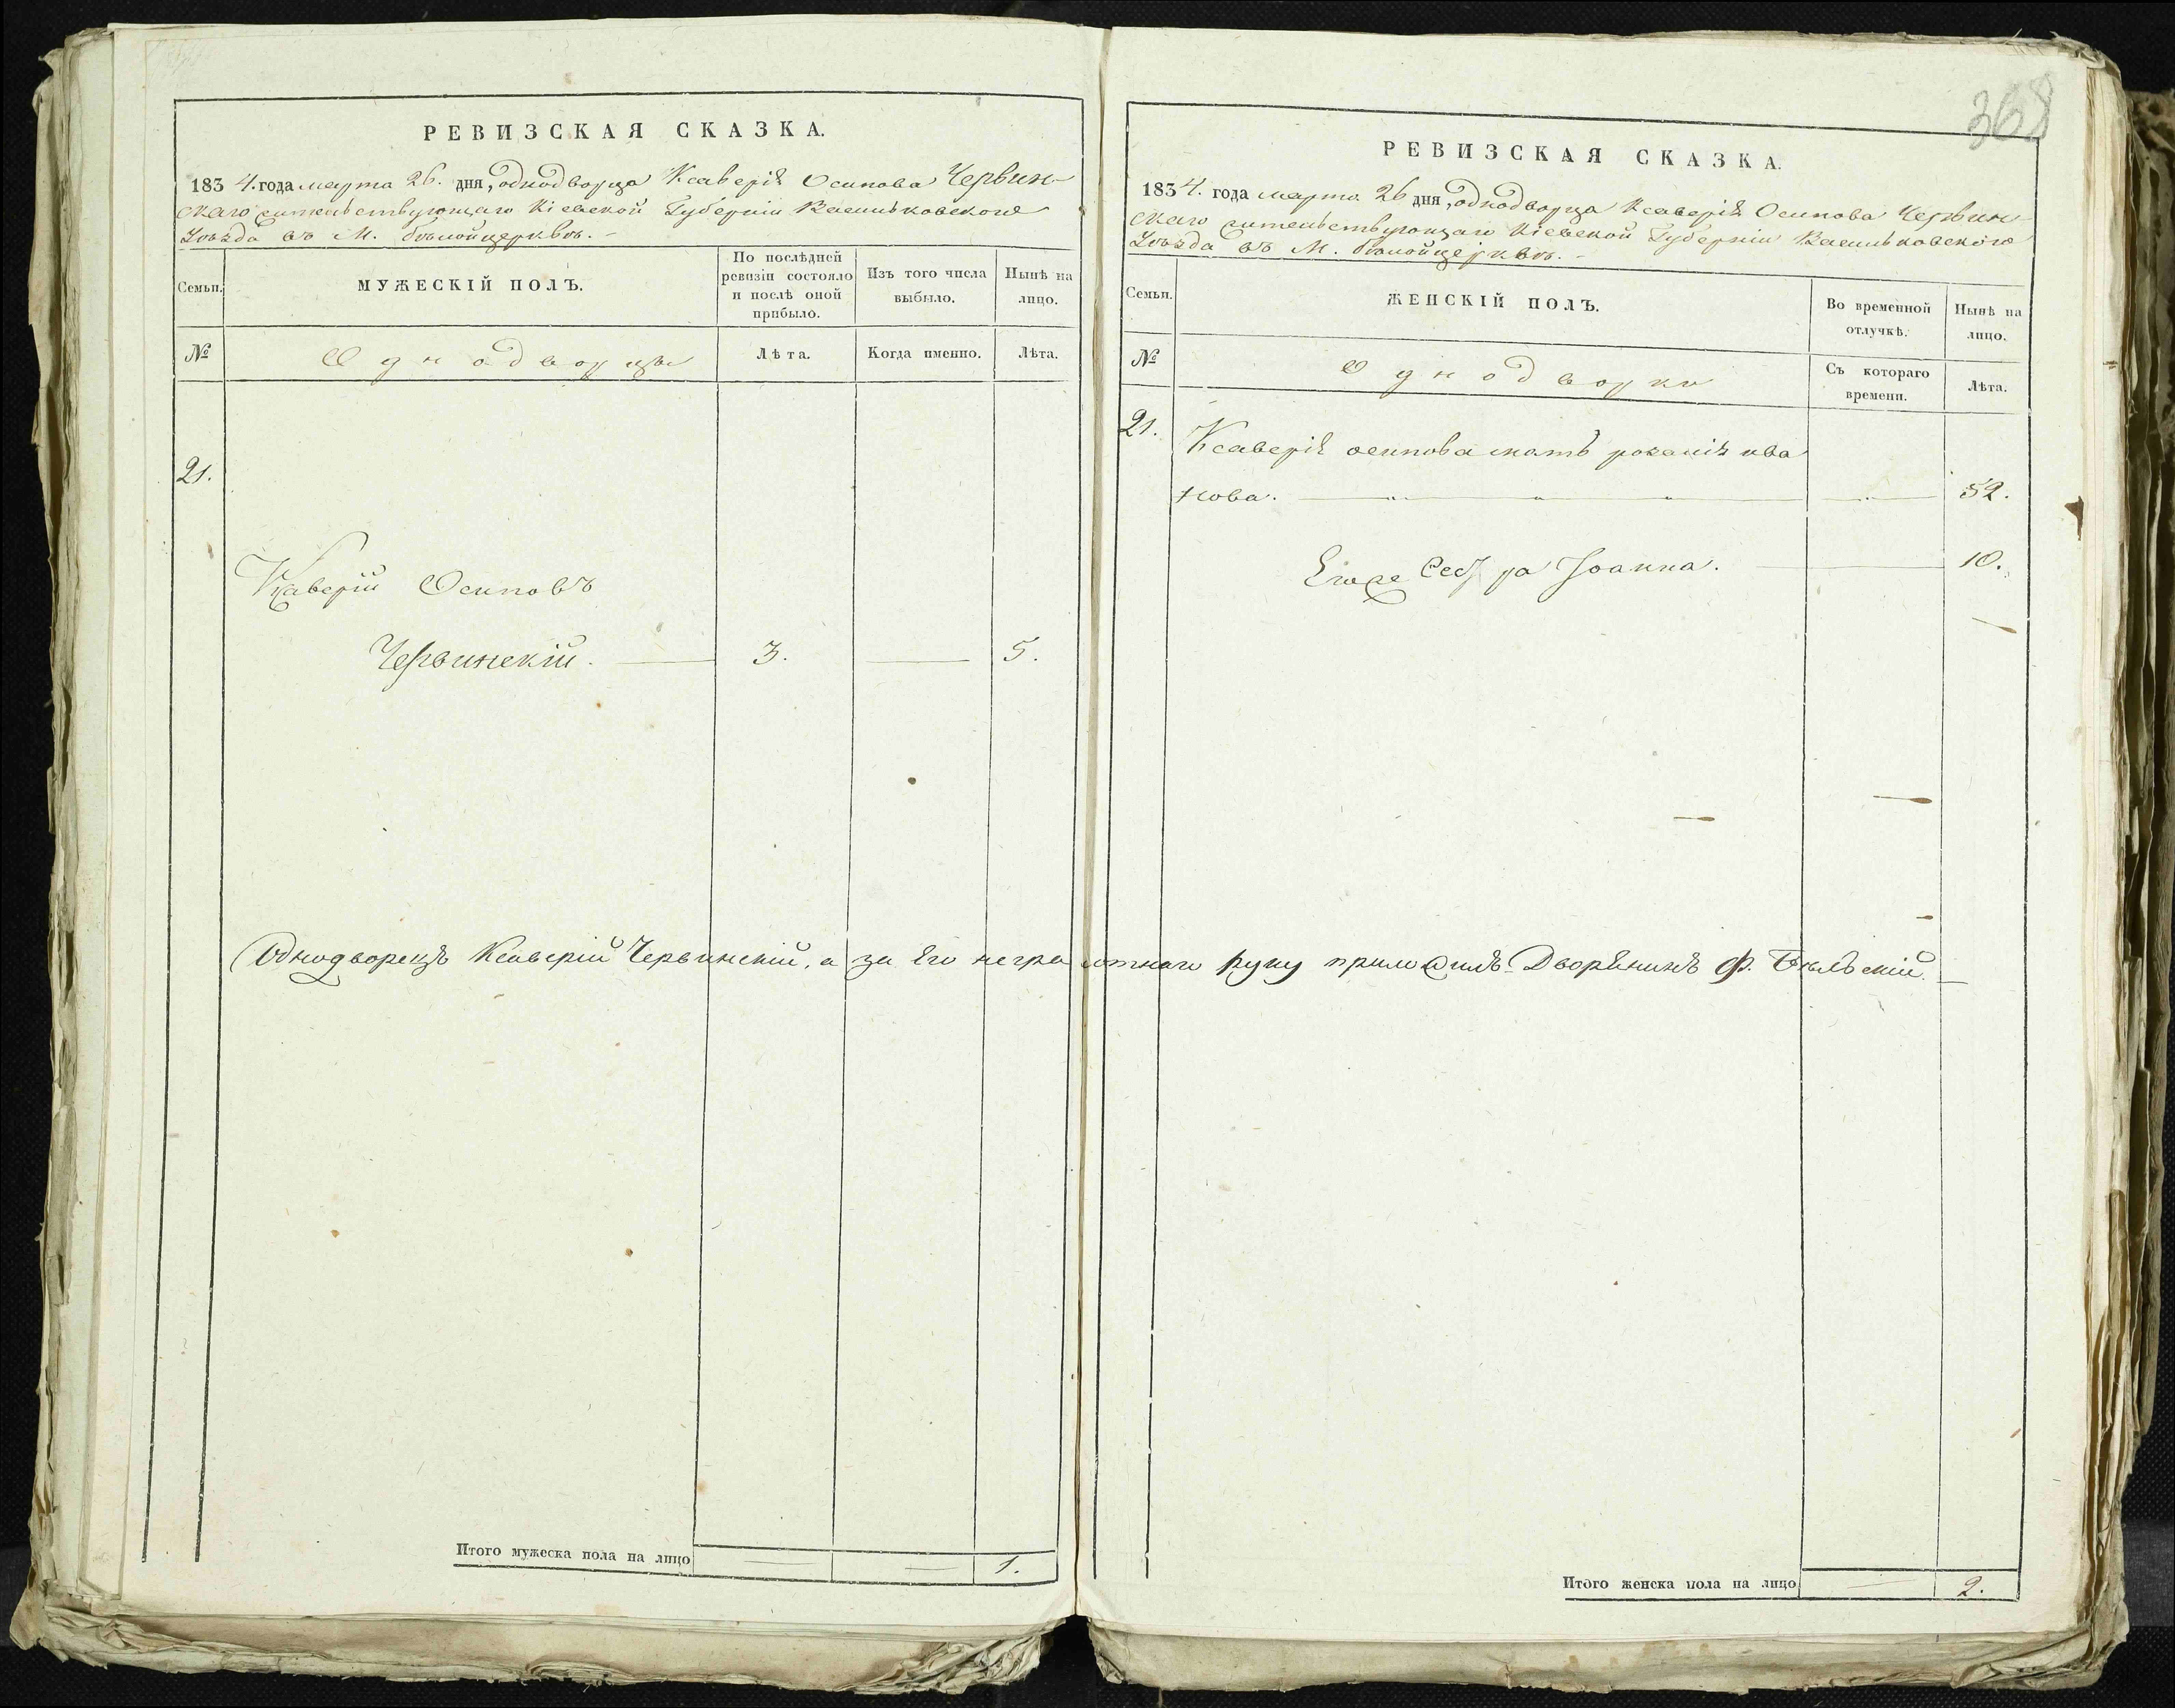 РЕВИЗСКАЯ СКАЗКА.
1834. года марта 26. дня, однодворца Ксаверія Осипова Червин-
скаго жительствующаго Кіевской Губерніи Васильковского
Уѣзда въ М. бѣлойцерквѣ. -
Семьи.
МУЖЕСКІЙ ПОЛЪ.
По послѣдней
ревизіи состояло
и послѣ оной
прибыло.
Изъ того числа
выбыло.
Нынѣ на
лицо.
№
Однодворцы
Лѣта.
Когда именно.
Лѣта.
21.
Ксаверій Осиповъ
Червинскій. 3. 5.
Однодворецъ Ксаверій Червинскій, а за Его неграмотнаго руку приложилъ Дворянинъ Ф. Бѣльскій.
Итого мужеска пола на лицо 1.
368
РЕВИЗСКАЯ СКАЗКА.
1834. года марта 26 дня, однодворца Ксаверія Осипова Червин-
скаго жительствующаго Кіевской Губерніи Васильковского
Уѣзда въ М. бѣлойцерквѣ. -
Семьи.
ЖЕНСКІЙ ПОЛЪ.
Во временной
отлучкѣ.
Нынѣ на
лицо.
№
Однодворки
Съ котораго
времени.
Лѣта.
21.
Ксаверія осипова мать розалія ива
нова. 52.
Егоже Сестра Іоанна. 10.
Итого женска пола на лицо 2.